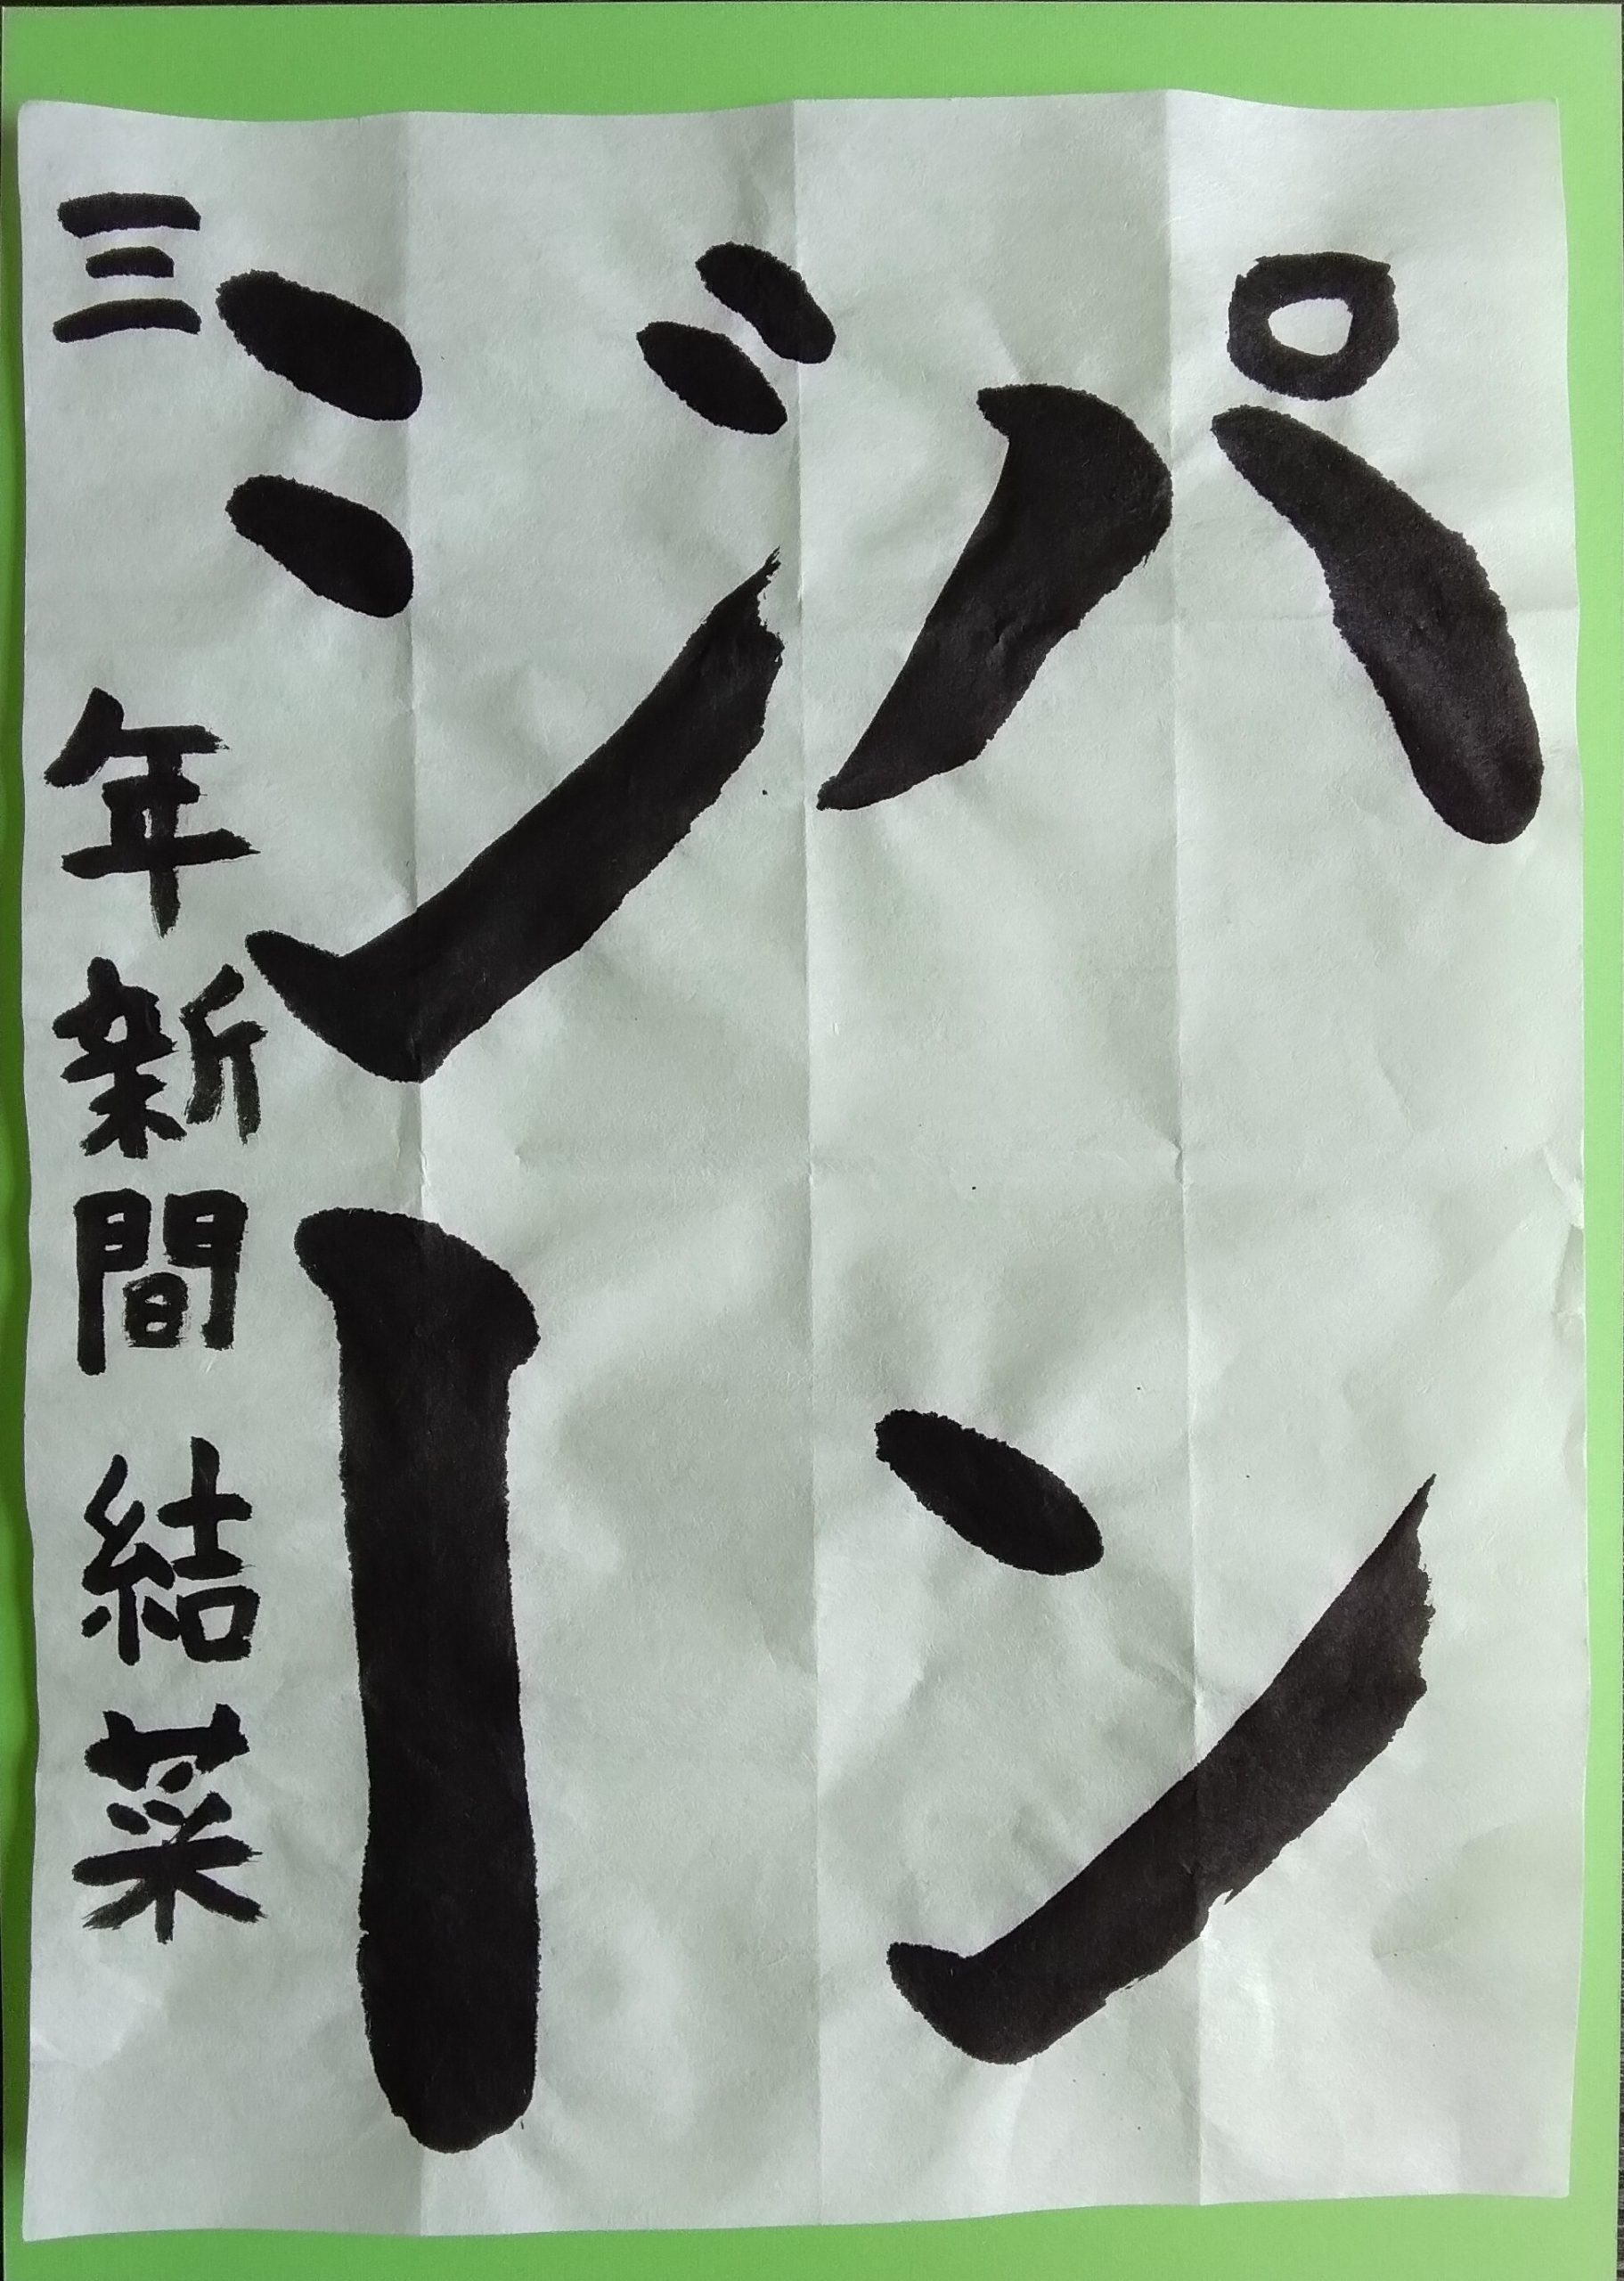 パン
ジー
三年新間結菜